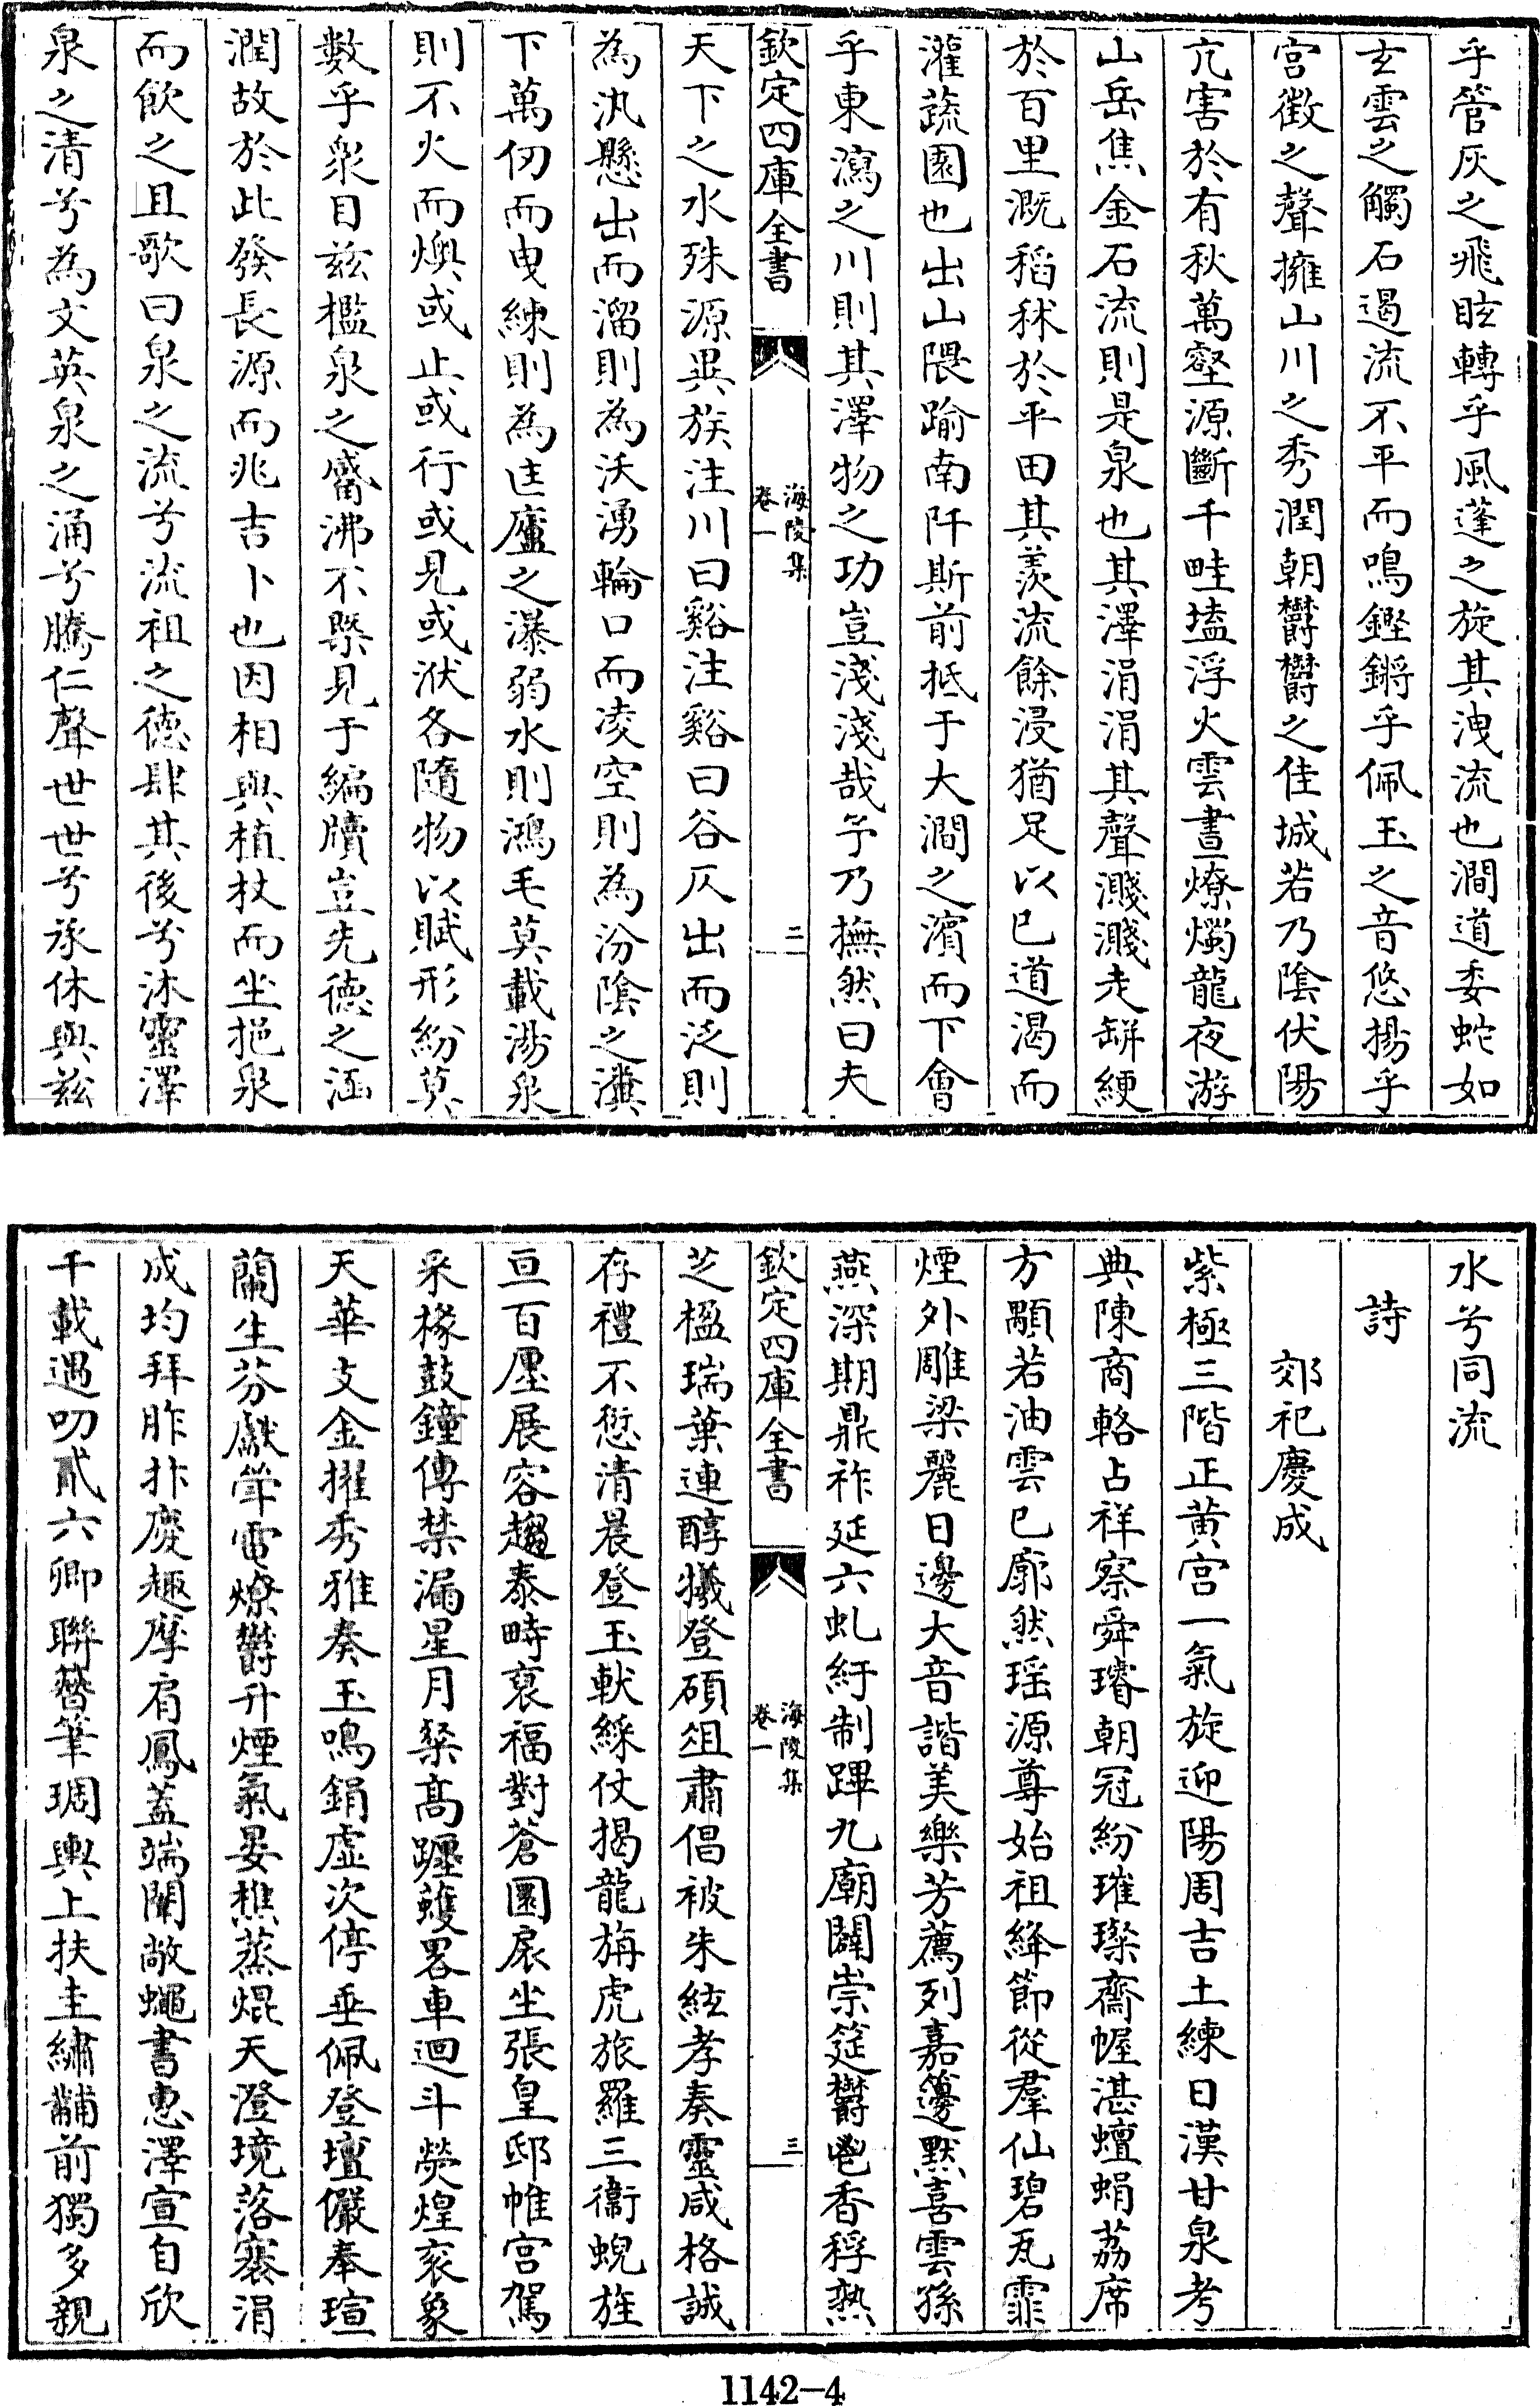 乎管灰之飛眩轉乎風蓬之旋其洩流也澗道委蛇如
玄雲之觸石遏流不平而鳴鏗鏘乎佩玉之音悠揚乎
宫徵之聲擁山川之秀潤朝欝欝之佳城若乃陰伏陽
亢害於有秋萬壑源斷千畦壒浮火雲晝燎燭龍夜游
山岳焦金石流則是泉也其澤涓涓其聲濺濺走缾綆
於百里溉稻秫於平田其羨流餘浸猶足以已道渴而
灌蔬園也出山隈踰南阡斯前抵于大澗之濱而下會
乎東瀉之川則其澤物之功豈淺淺哉予乃撫然曰夫
欽定四庫全書
海陵集
卷一
二
天下之水殊源異族注川曰谿注谿曰谷仄出而泛則
為氿懸出而溜則為沃湧輪口而凌空則為汾陰之瀵
下萬仞而曳練則為匡廬之瀑弱水則鴻毛莫載湯泉
則不火而燠或止或行或見或洑各隨物以賦形紛莫
數乎衆目兹檻泉之觱沸不槩見于編牘豈先德之涵
潤故於此發長源而兆吉卜也因相與植杖而坐挹泉
而飲之且歌曰泉之流兮流祖之德肆其後兮沐靈澤
泉之清兮為文英泉之涌兮騰仁聲世世兮承休與兹
水兮同流
詩
郊祀慶成
紫極三階正黄宫一氣旋迎陽周吉土練日漢甘泉考
典陳商輅占祥察舜璿朝冠紛璀璨齋幄湛蠉蜎荔席
方顒若油雲已廓然瑶源尊始祖絳節從羣仙碧瓦霏
煙外雕梁麗日邊大音諧美樂芳薦列嘉籩黙喜雲孫
燕深期鼎祚延六虬紆制蹕九廟闢崇筵欝鬯香稃熟
欽定四庫全書
海陵集
卷一
三
芝楹瑞葉連醇犧登碩俎肅倡被朱絃孝奏靈咸格誠
存禮不愆清晨登玉軑綵仗揭龍旃虎旅羅三衞蜺旌
亘百廛展容趨泰畤裒福對蒼圜扆坐張皇邸帷宫駕
采椽鼓鐘傳禁漏星月粲髙躔蠖畧車迴斗熒煌衮象
天華支金擢秀雅奏玉鳴鋗虚次停垂佩登壇儼奉瑄
蘭生芬獻斝電燎欝升煙氣晏樵蒸焜天澄境落褰涓
成均拜胙抃慶趣摩肩鳳蓋端闈敞蠅書惠澤宣自欣
千載遇叨貳六卿聯簪筆琱輿上扶圭繡黼前獨多親
1142-4